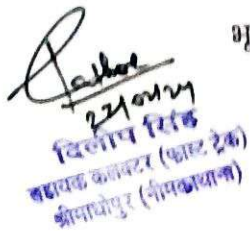 22/02/24
दिलीप सिंह
सहायक कलक्टर (फास्ट ट्रेक)
श्रीमाधोपुर (नीमकाथाना)